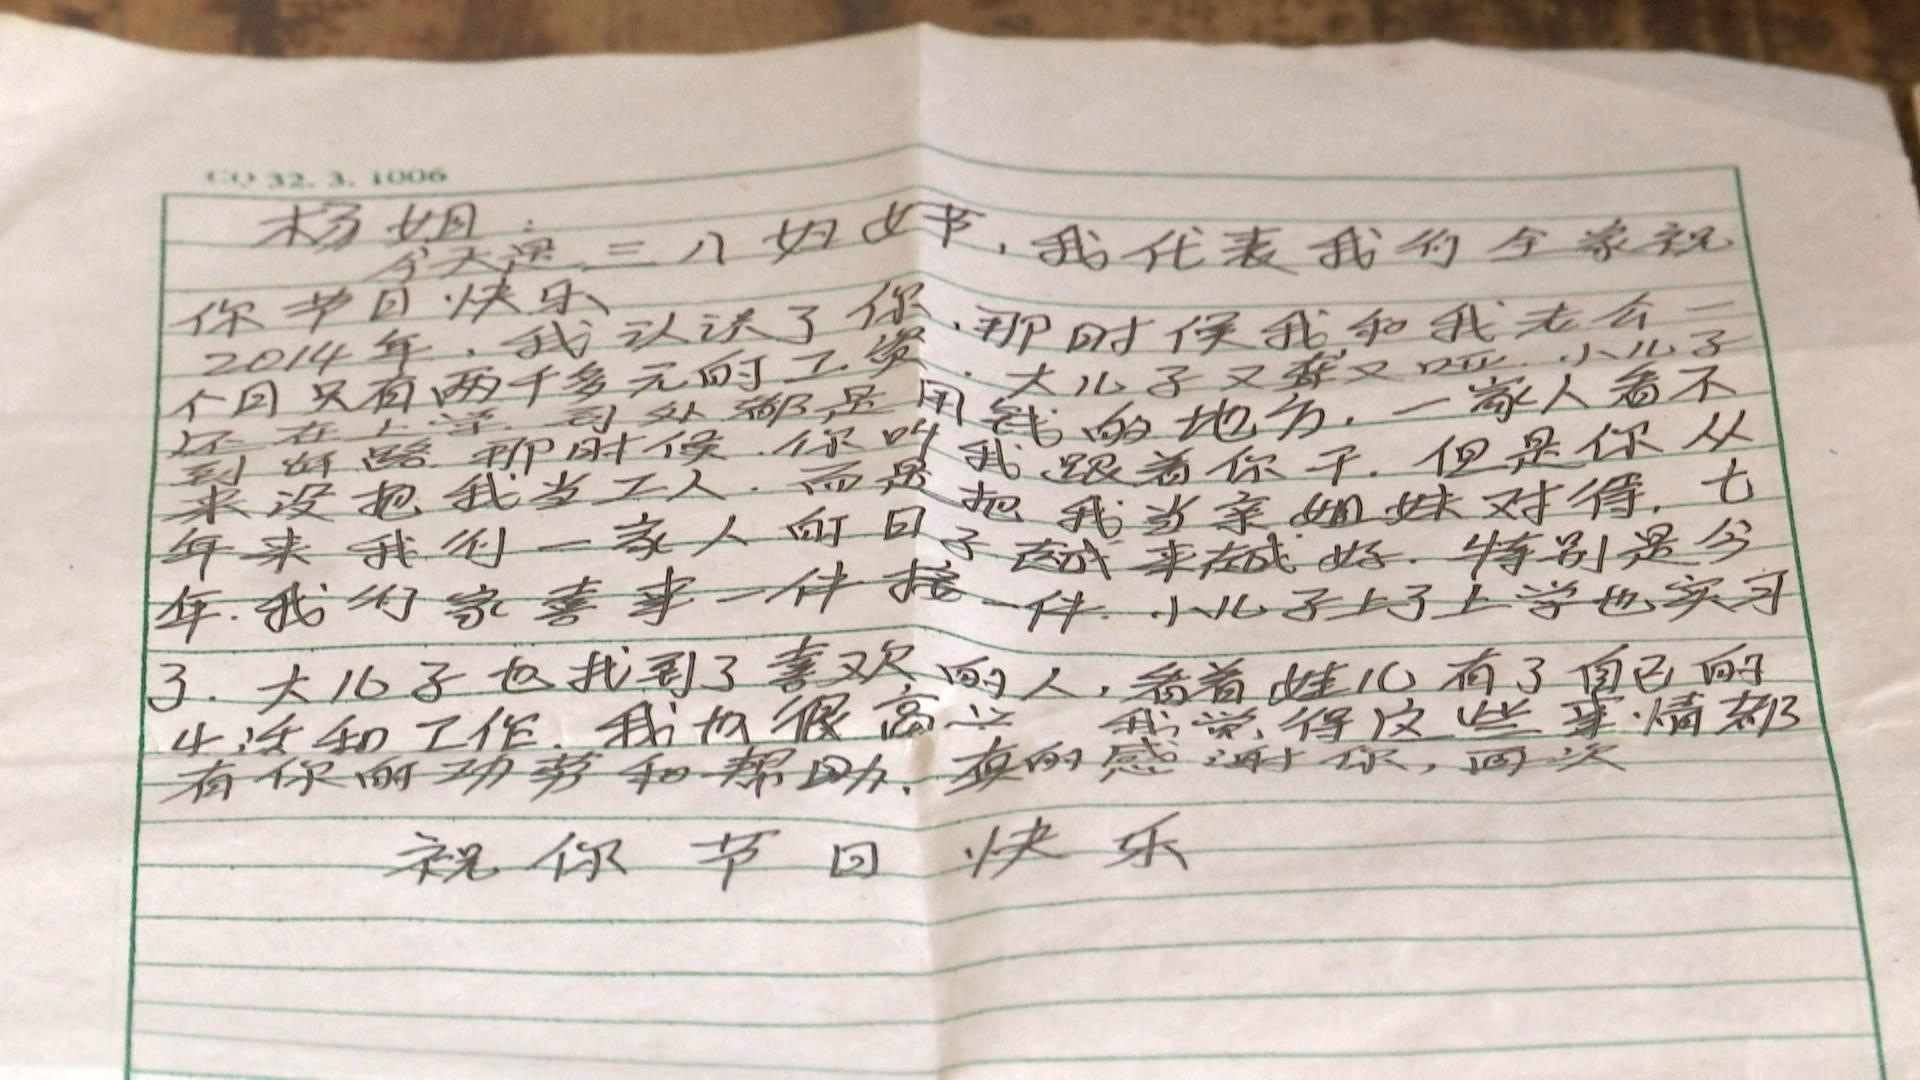 CQ 32. 3. 1006
杨姐：
今天是三八妇女节，我代表我们全家祝
你节日快乐
2014年，我认识了你，那时候我和我老公一
个月只有两千多元的工资，大儿子又聋又哑，小儿子
还在上学，到处都是用钱的地方，一家人看不
到好路，那时候，你叫我跟着你干，但是你从
来没把我当工人，而是把我当亲姐妹对待，七
年来我们一家人的日子越来越好，特别是今
年，我们家喜事一件接一件，小儿子上了上学也实习
了，大儿子也找到了喜欢的人，看着娃儿有了自己的
生活和工作，我也很高兴 我觉得这些事情都
有你的功劳和帮助，真的感谢你，再次
祝你节日快乐